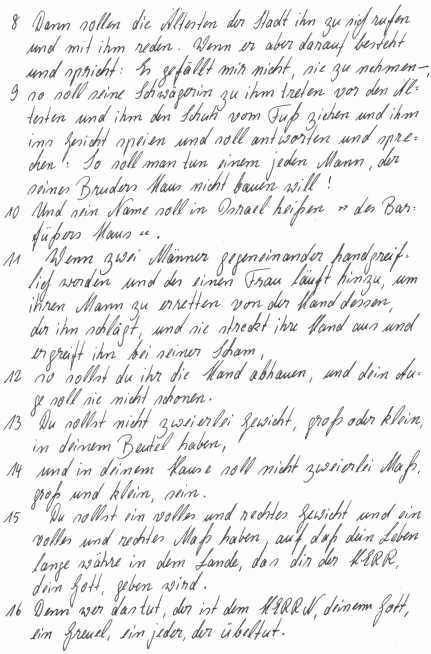 8 Dann sollen die Ältesten der Stadt ihn zu sich rufen
und mit ihm reden. Wenn er aber darauf besteht
und spricht: Es gefällt mir nicht, sie zu nehmen -,
9 so soll seine Schwägerin zu ihm treten vor den Äl-
testen und ihm den Schuh vom Fuß ziehen und ihm
ins Gesicht speien und soll antworten und spre-
chen: So soll man tun einem jeden Mann, der
seines Bruders Haus nicht bauen will!
10 Und sein Name soll in Israel heißen » des Bar-
füßers Haus «.
11 Wenn zwei Männer gegeneinander handgreif-
lich werden und des einen Frau läuft hinzu, um
ihren Mann zu erretten von der Hand dessen,
der ihn schlägt, und sie streckt ihre Hand aus und
ergreift ihn bei seiner Scham,
12 so sollst du ihr die Hand abhauen, und dein Au-
ge soll sie nicht schonen.
13 Du sollst nicht zweierlei Gewicht, groß oder klein,
in deinem Beutel haben,
14 und in deinem Hause soll nicht zweierlei Maß,
groß und klein, sein.
15 Du sollst ein volles und rechtes Gewicht und ein
volles und rechtes Maß haben, auf daß dein Leben
lange währe in dem Lande, das dir der HERR,
dein Gott, geben wird.
16 Denn wer das tut, der ist dem HERRN, deinem Gott,
ein Greuel, ein jeder, der übeltut.